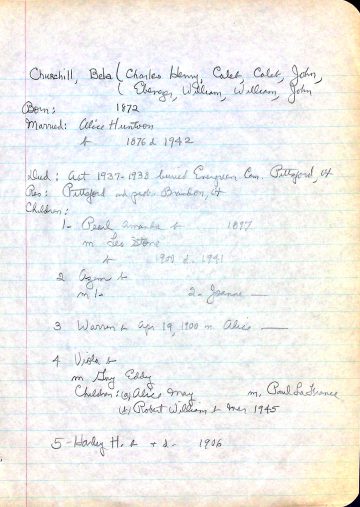 Churchill, Beba ( Charles Henry, Caleb, Caleb, John,
( Ebenezer, William, William, John
Born: 1872
Married: Alice Huntoon
b 1876 d 1942
Died: Oct 1937-1938 buried Evergreen Cem. Pittsford, Vt
Res: Pittsford and prob. Brandon, Vt
Children:
1- Pearl Amanda b 1897
m Leo Stone
b 1900 d. 1941
2 b
m 1- 2- Joanne —
3 Warren b Apr 19, 1900 m. Alice —
4 Viola b
m Guy Eddy
Children: (a) Alice May m. Paul LaFrance
(b) Robert William b 1945
5- Harley H. b + d. 1906